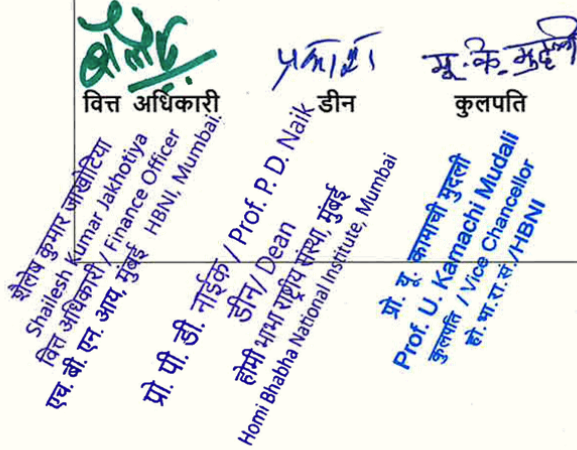 शैलेष
प्रकाश
यू. के. मुदली
वित्त अधिकारी
डीन
कुलपति
शैलेष कुमार जाखोटिया
Shailesh Kumar Jakhotiya
वित्त अधिकारी / Finance Officer
एच. बी. एन. आय, मुंबई HBNI, Mumbai.
प्रो. पी. डी. नाईक / Prof. P. D. Naik
डीन/ Dean
होमी भाभा राष्ट्रीय संस्था, मुंबई
Homi Bhabha National Institute, Mumbai
प्रो. यू. कामाची मुदली
Prof. U. Kamachi Mudali
कुलपति / Vice Chancellor
हो. भा. रा. सं. /HBNI